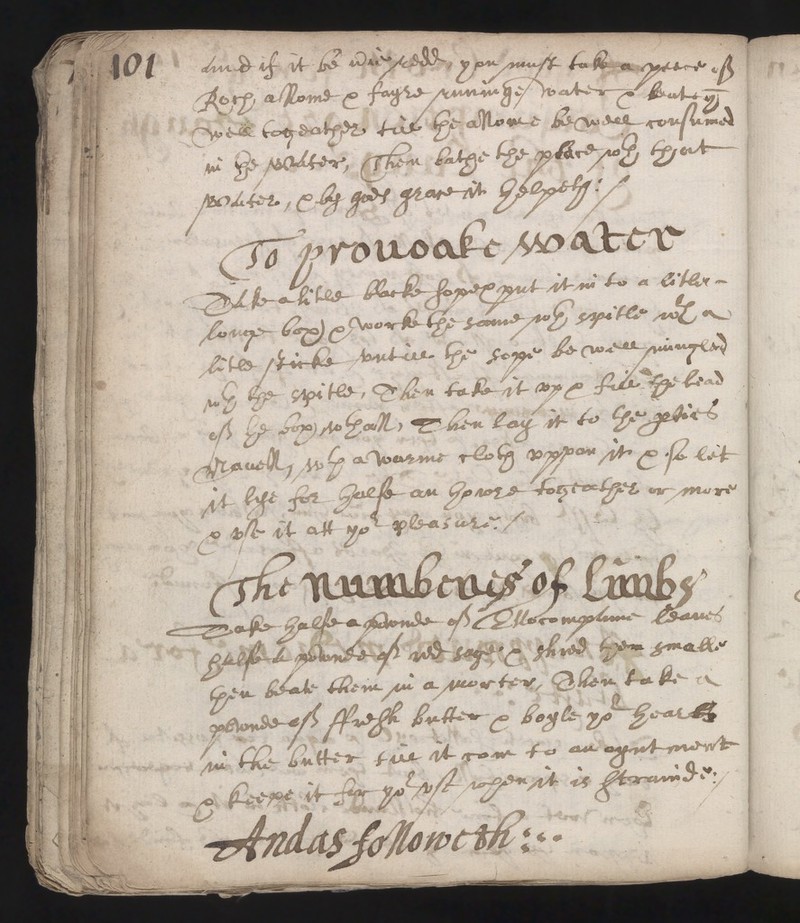 101
And if it be verie redd, you must take a peece of
Roch allome & fayre runninge water & beat
well togeather till the allome be well consumed
in the water, Then bathe the place wth that
water, & by gods grace it helpeth:/
To prouoake water
Take a litle blacke sope & put it in to a litle
longe box, & worke the same wth spitle wth a
litle sticke vntill the sope be well mingled
wth the spitle, Then take it vp & fill the head
of the box wthall, Then lay it to the pties
Navell, wth a warme cloth vppon it & so let
it lye for halfe an howre togeather or more
& vse it att yor pleasure:/
The numbenes of limbs
Take halfe a pownde of leaues
halfe a pownde of red sage & shred them smalle
then beate them in a morter, Then take a
pownde of ffresh butter & boyle yor hearbs
in the butter till it com to an oyntment
& keepe it for yor vse when it is strainde:/
And as followeth: